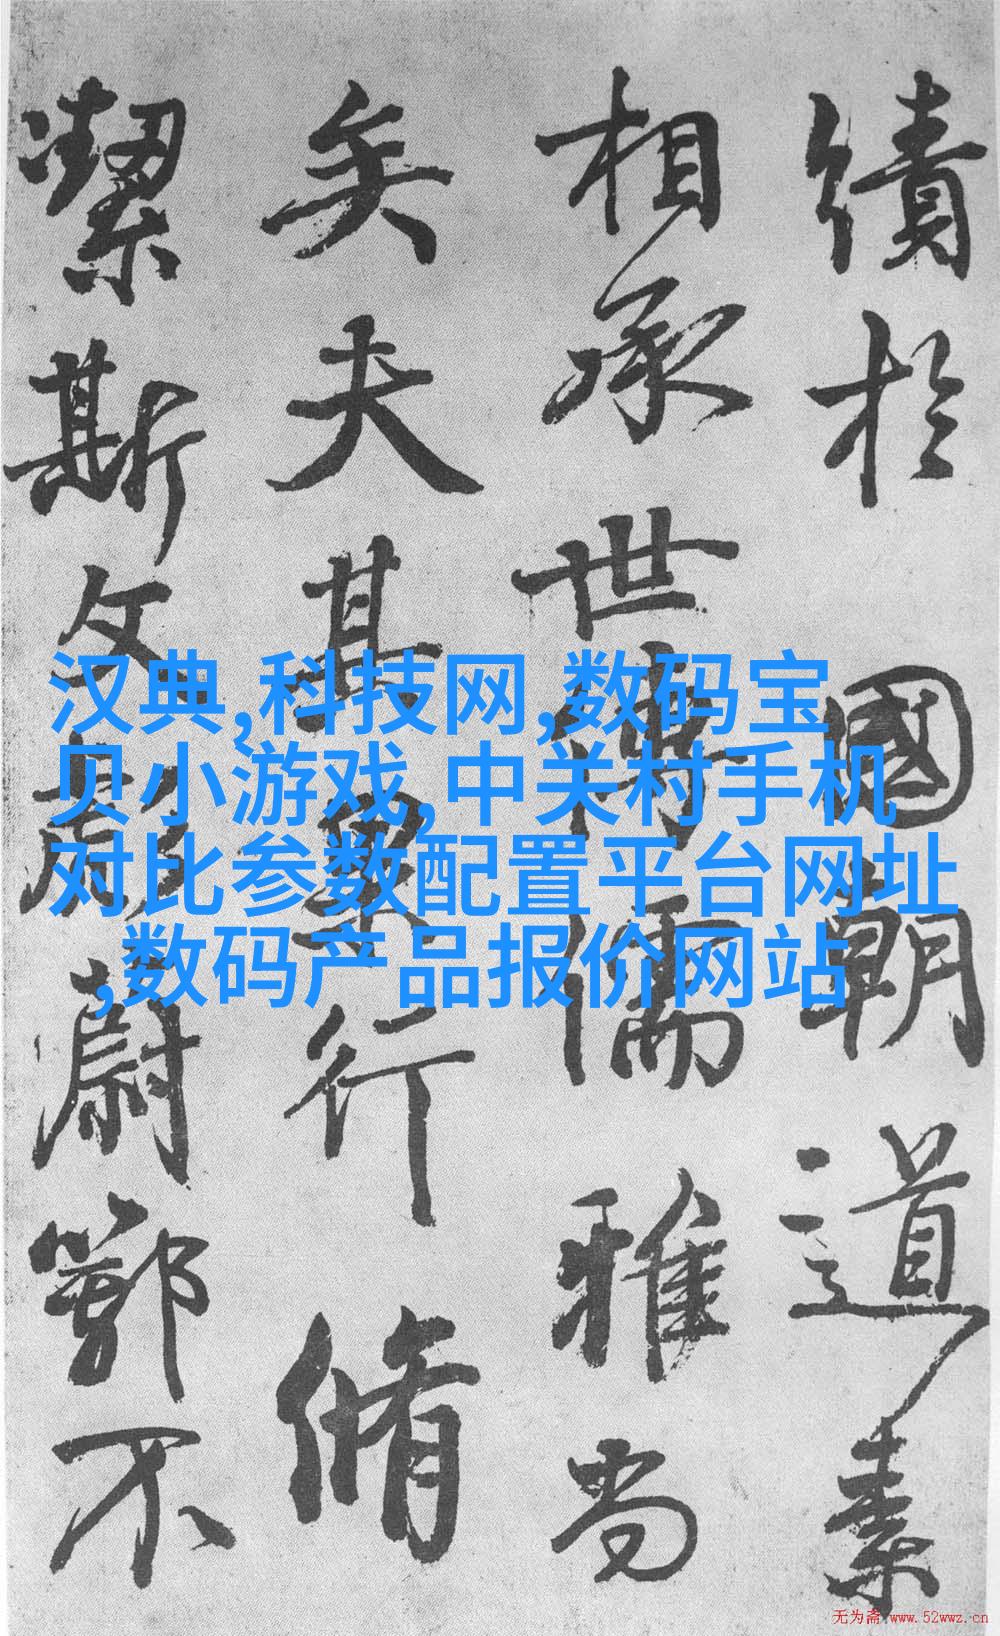 績於國朝道素
相承世傳儒雅尚
矣夫其果行脩
潔斯文彪蔚鄂不
汉典,科技网,数码宝
贝小游戏,中关村手机
对比参数配置平台网址
,数码产品报价网站
无为斋 www.52wwz.cn